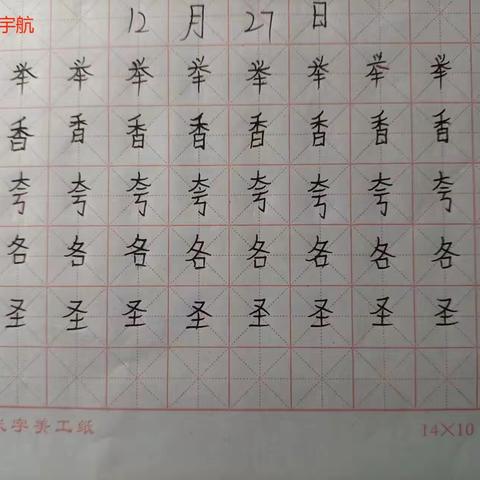 宇航
12月27日
举举举举举举举举
香香香香香香香香
夸夸夸夸夸夸夸夸
各各各各各各各各
圣圣圣圣圣圣圣圣
米字美工纸 14×10